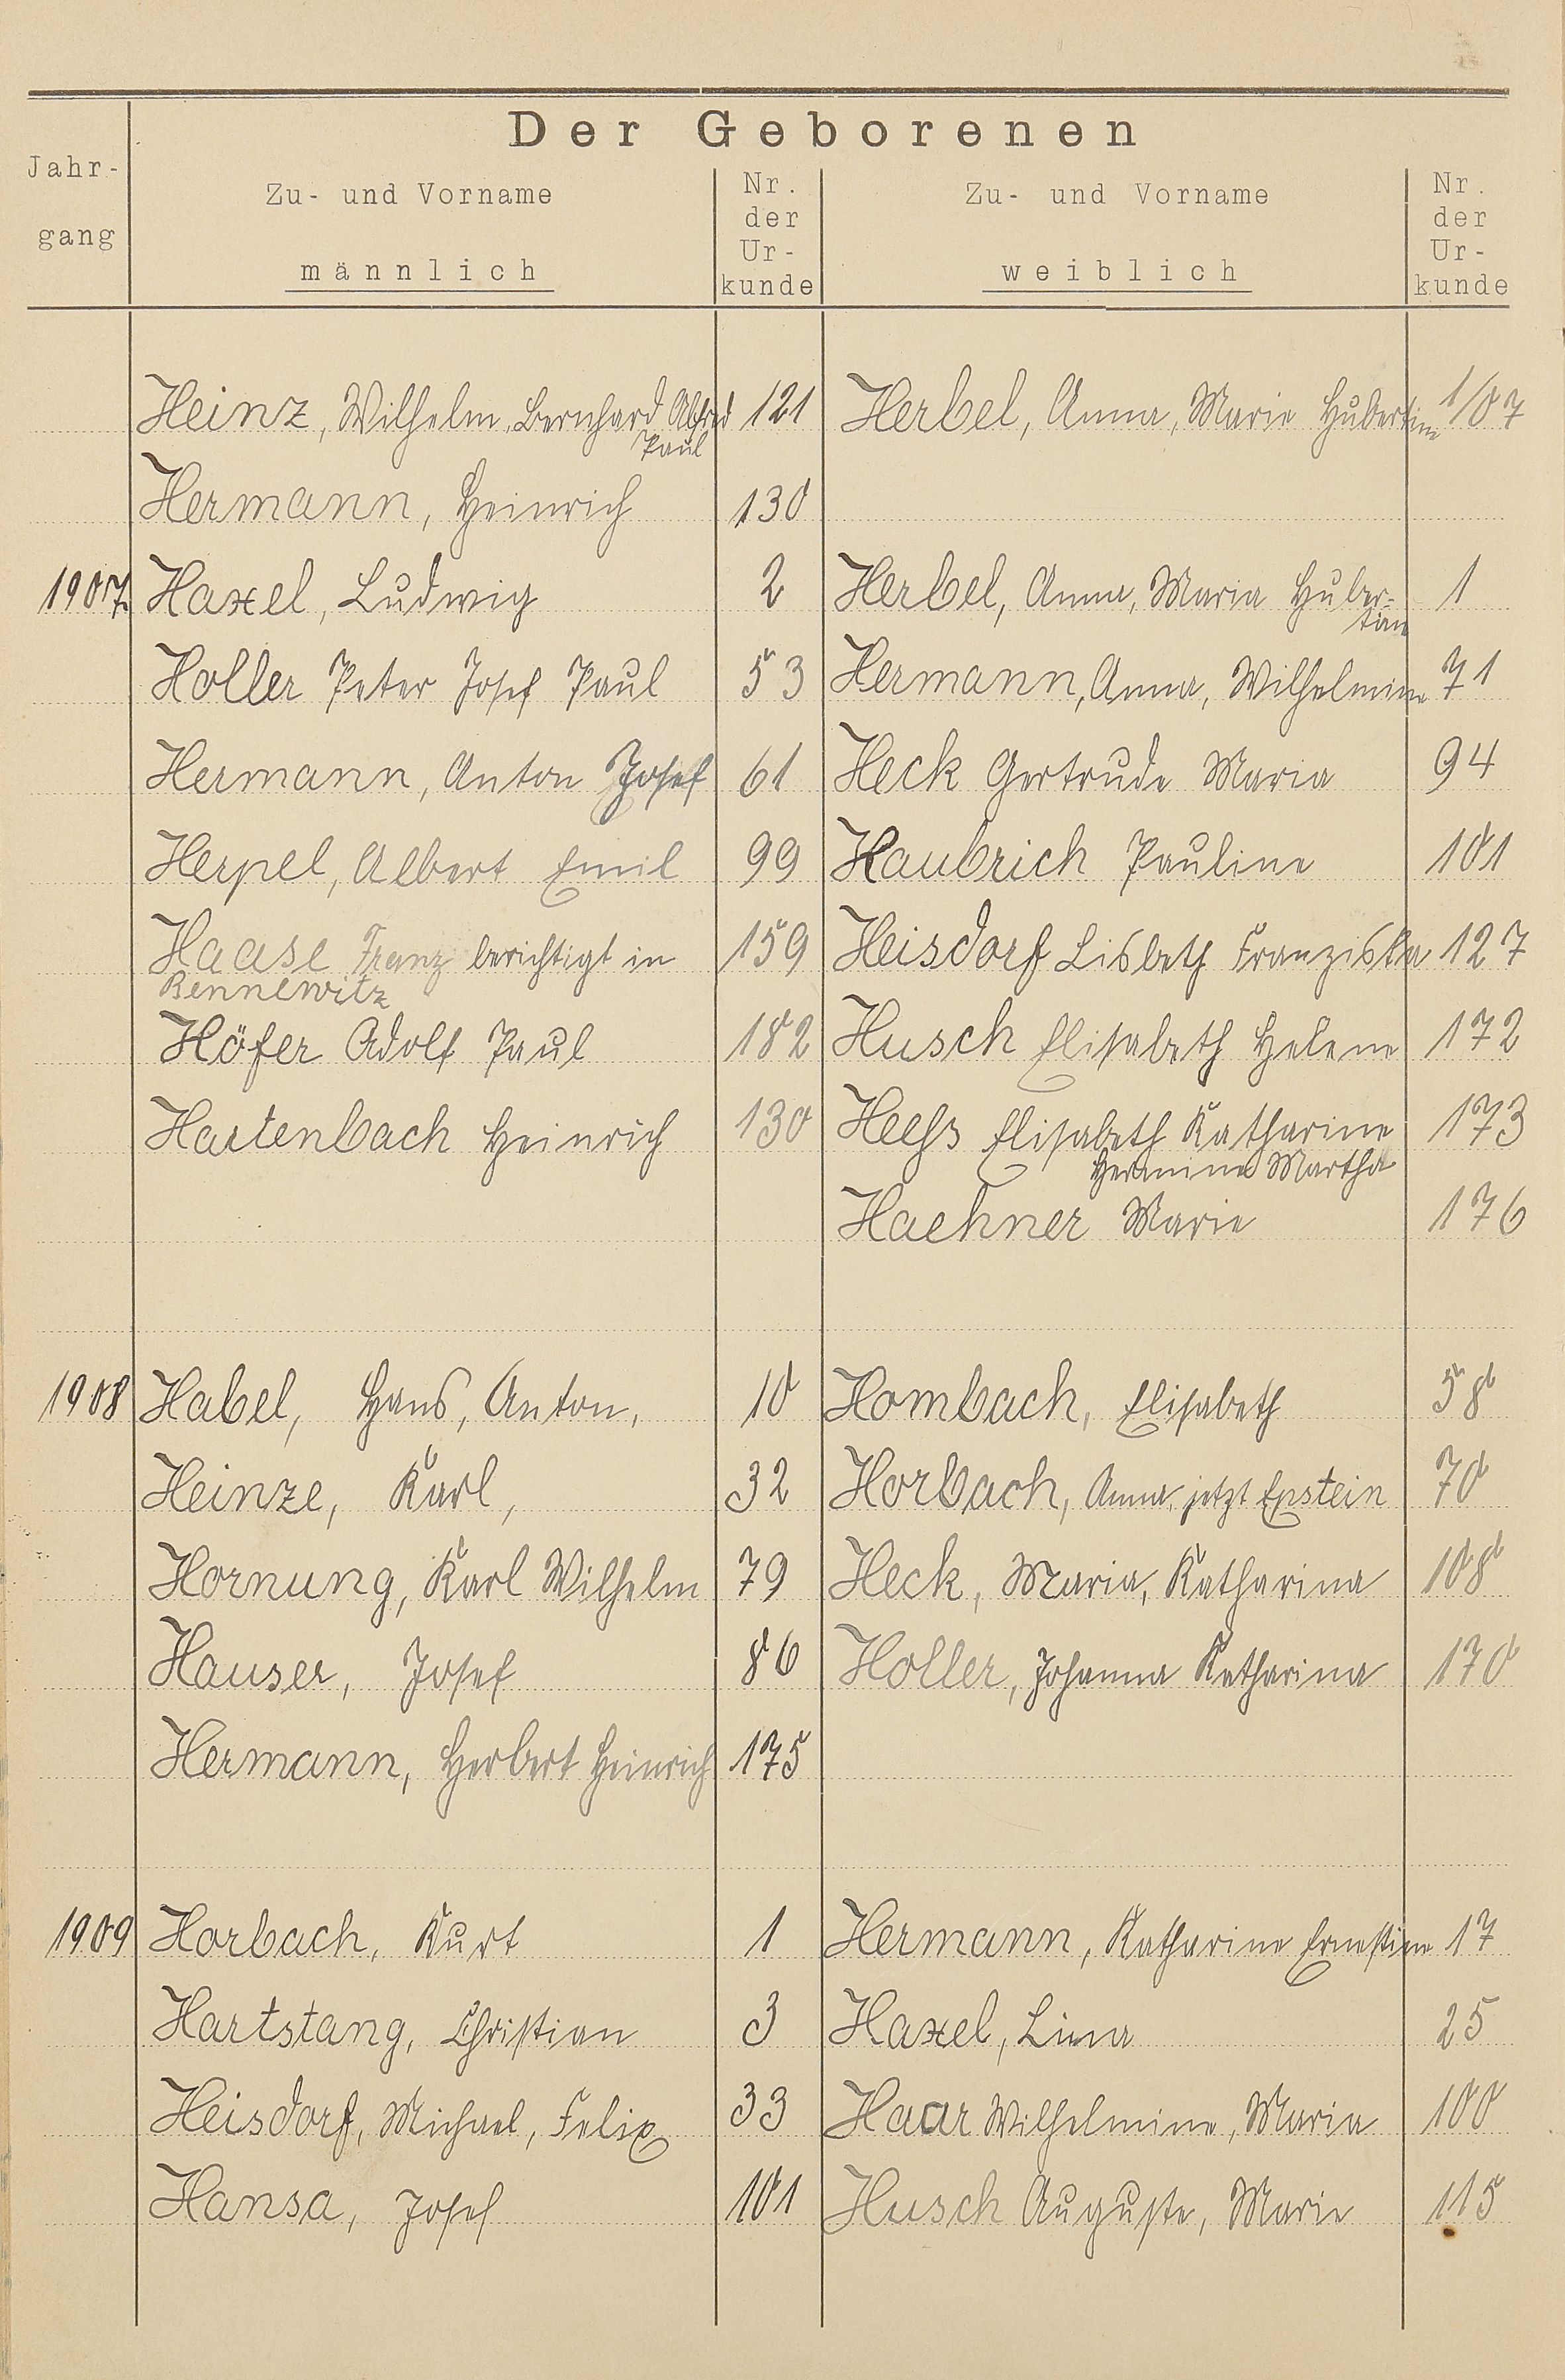 Der Geborenen
Jahr-
gang
Zu- und Vorname
männlich
Nr.
der
Ur-
kunde
Zu- und Vorname
weiblich
Nr.
der
Ur-
kunde
Heinz, Wilhelm, Bernhard Alfred 121 Herbel, Anna, Marie Hubertine 1/07
Paul
Hermann, Heinrich 130
1907. Haxel, Ludwig 2 Herbel, Anna, Maria Huber= 1
tine
Holler Peter Josef Paul 53 Hermann, Anna, Wilhelmine 71
Hermann, Anton Josef 61 Heck Gertrude Maria 94
Herpel, Albert Emil 99 Haubrich Pauline 101
Haase Franz berichtigt in 159 Heisdorf Lisbeth Franziska 127
Rennewitz
Höfer Adolf Paul 182 Husch Elisabeth Helene 172
Hartenbach Heinrich 130 Heehs Elisabeth Katharine 173
Hermine Martha
Haehner Marie 176
1908 Habel, Hans, Anton, 10 Hombach, Elisabeth 58
Heinze, Karl, 32 Horbach, Anna, jetzt Epstein 70
Hornung, Karl Wilhelm 79 Heck, Maria, Katharina 108
Hauser, Josef 86 Holler, Johanna Katharina 170
Hermann, Herbert Heinrich 175
1909 Horbach, Kurt 1 Hermann, Katharine Ernestine 17
Hartstang, Christian 3 Haxel, Lina 25
Heisdorf, Michael, Felix 33 Haar Wilhelmine, Maria 100
Hansa, Josef 101 Husch Auguste, Marie 115